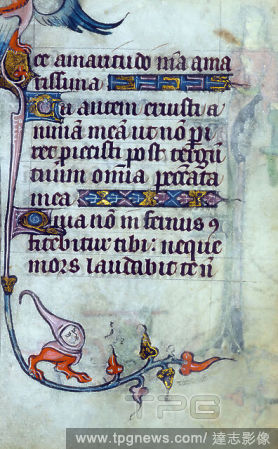 ce amaritudo m̄a ama
rissima
Tu autem eruisti a
nimam meā ut nō pe
ret proiecisti post tergū
tuum om̄ia peccata
mea
Quia nō infernus ꝯ
fitebitur tibi: neque
mors laudabit te n̄
TPG
www.tpgnews.com / 達志影像